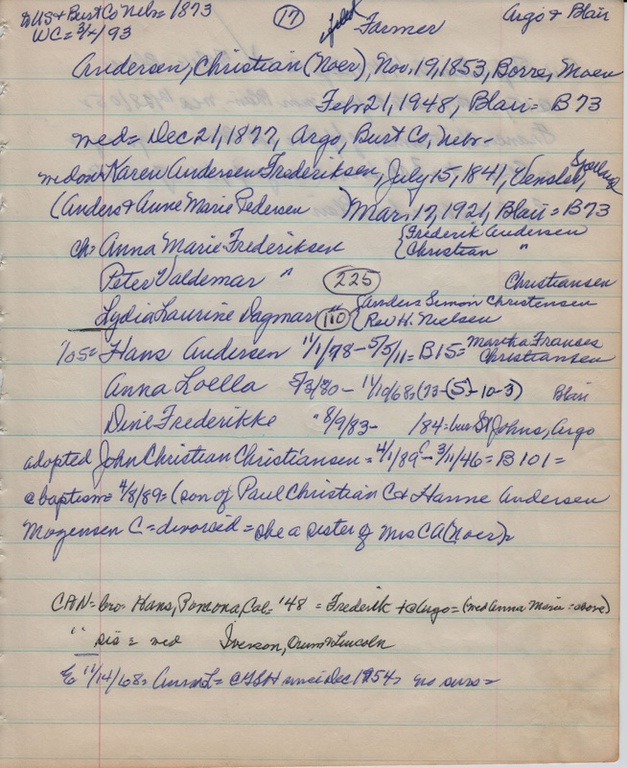 to US & Burt Co Nebr = 1873 (17) Farmer Argo & Blair
WC = 3/ /93
Andersen, Christian (Noer), Nov. 19, 1853, Borre, Moen
Feb 21, 1948, Blair = B 73
med = Dec 21, 1877, Argo, Burt Co, Nebr -
Karen Andersen Frederiksen, July 15, 1841, Venslev, Sjaelland
(Anders & Anne Marie Pedersen Mar. 17, 1921, Blair = B73
ch = Anna Marie Frederiksen {Frederik Andersen
Christian "
Peter Valdemar " (225) Christiansen
Lydia Laurine Dagmar " (110) {Anders Simon Christensen
Rev H. Nielsen
1/0 5 = Hans Andersen 11/1/78 - 5/5/11 = B15 = Martha Frances
Christiansen
Anna Loella 5/3/80 - 11/10/68 = (73-(5)-10-3) Blair
Dine Frederikke " 8/9/83 - /84 = bur St Johns, Argo
adopted John Christian Christiansen = 4/1/89 - 3/11/46 = B 101 =
@ baptism = 4/8/89 = (son of Paul Christian C & Hanne Andersen
Mogensen C = divorced = she a sister of Mrs CA (Noer) =
CAN = bro = Hans, Pomona, Cal = '48 = Frederik Argo = (med Anna Marie = above)
" sis = med Iverson, Lincoln
11/14/68 = Anna L = since Dec 1954 = no surv =